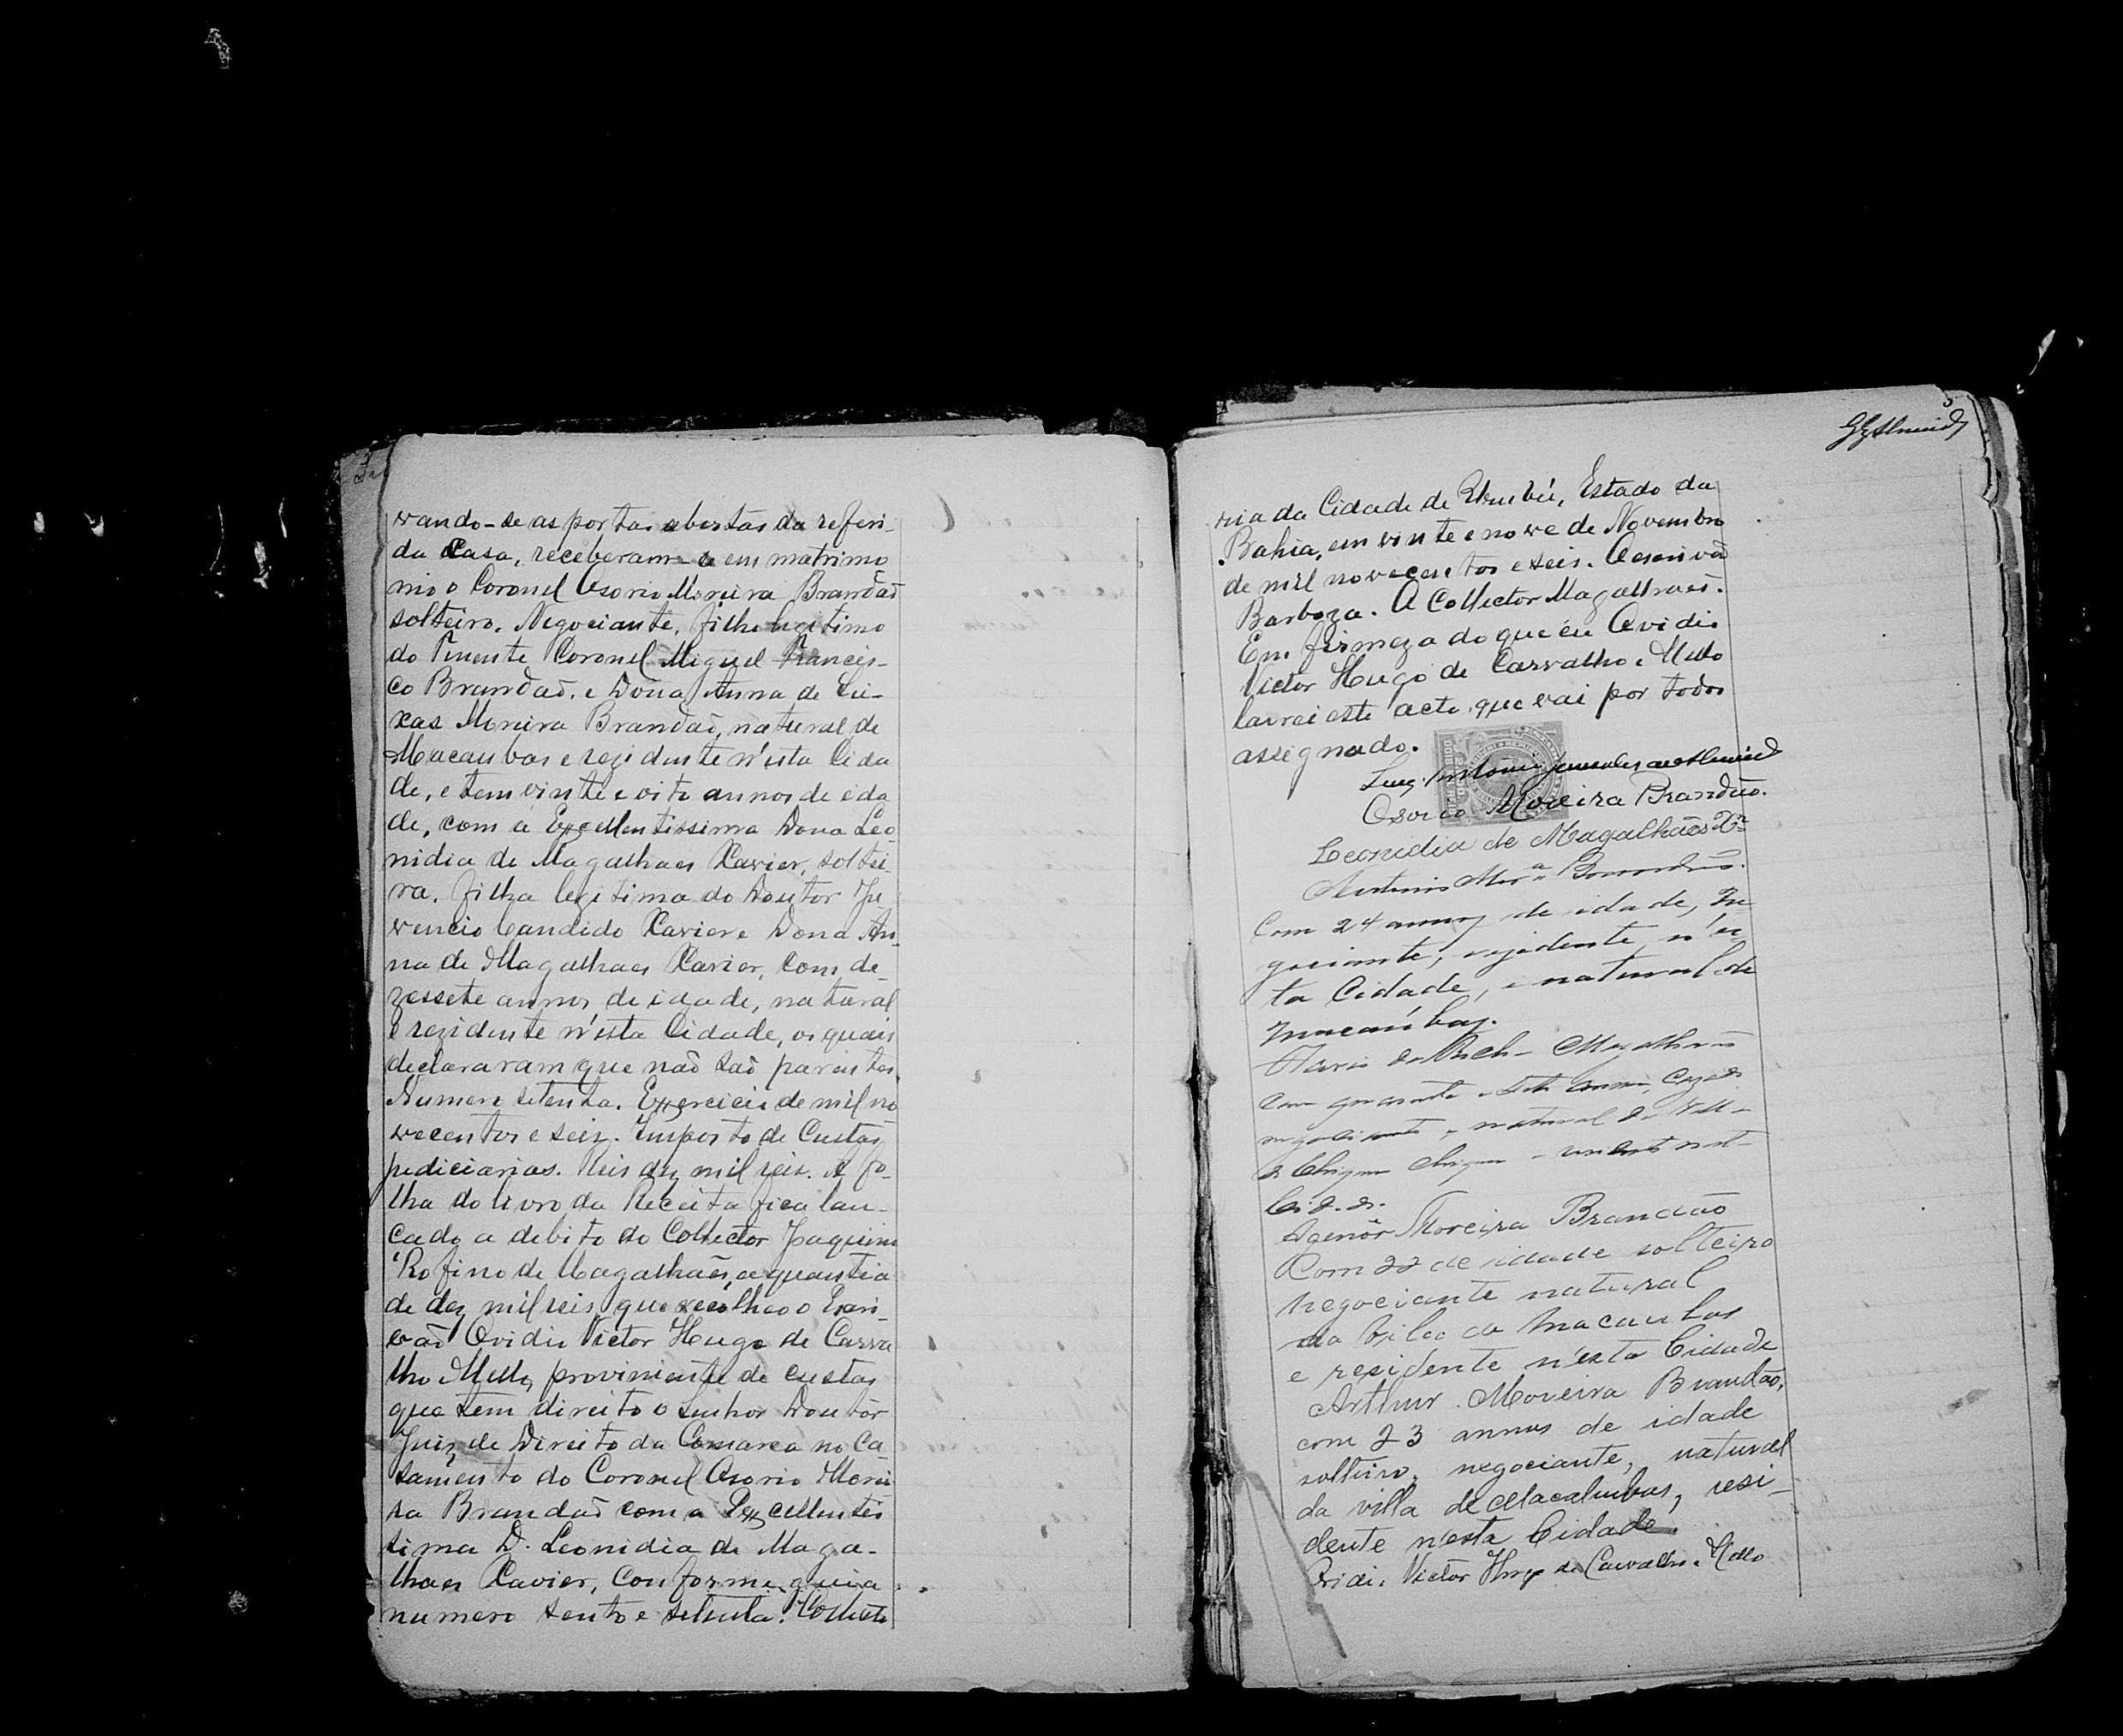 vando-se as portas abertas da referi-
da Casa, receberam-se em matrimo
nio o Coronel Osorio Moreira Brandaõ
solteiro. Negociante, filho legitimo
do Tenente Coronel Miguel Francis-
co Brandaõ, e Dona Anna de Sei-
xas Moreira Brandaõ, natural de
Macaubas e rezidente n'esta Cida
de, e tem vinte e oito annos de eda
de, com a Excellentissima Dona Leo
nidia de Magalhaes Xavier, soltei-
ra, filha legitima do Doutor Ju
vencio Candido Xavier e Dona An-
na de Magalhaes Xavier, com de-
zessete annos de idade, natural
e rezidente n'esta Cidade, os quais
declararam que naõ saõ parentes.
Numero setenta. Exercicio de mil no
vecentos e seis. Imposto de Custas
judiciarias. Reis dez mil reis. A fo-
lha do livro da Receita fica lan-
cado a debito do Collector Joaquim
Rofino de Magalhães, a quantia
de dez mil reis que recolheo o Escri-
vaõ Ovidio Victor Hugo de Carva
lho Mello, proviniente de custas
que tem direito o Senhor Doutor
Juiz de Direito da Comarca no Ca-
samento do Coronel Osorio Morei
ra Brandaõ com a Excellentis
sima D. Leonidia de Maga-
lhaes Xavier, conforme guia
numero sento e setenta. Collecto
5
ria da Cidade de Urubú, Estado da
Bahia, em vinte e nove de Novembro
de mil novecentos e seis. O escrivaõ
Barboza. O Collector Magalhaes.
Em firmeza do que eu Ovidio
Victor Hugo de Carvalho e Mello
lavrei este acto que vai por todos
assignado.
Luiz Antonio de Almeida
Osorio Moreira Brandão.
Leonidia de Magalhães Xer
Antonio Mora Brandão.
Com 24 annos de idade, ne-
gociante, rezidente n'es-
ta Cidade, e natural de
Macaúbas.
Magalhães
com quarenta e sete annos, cazado
negociante, natural da Villa
de Chique Chique
Cid.de.
Agenôr Moreira Brandão
Com 22 de idade solteiro
negociante natural
da Vila de Macaubas
e residente n'esta Cidade
Arthur Moreira Brandão,
com 23 annos de idade
solteiro, negociante, natural
da villa de Macahubas, resi-
dente n'esta Cidade.
Ovidio Victor Hugo de Carvalho e Mello